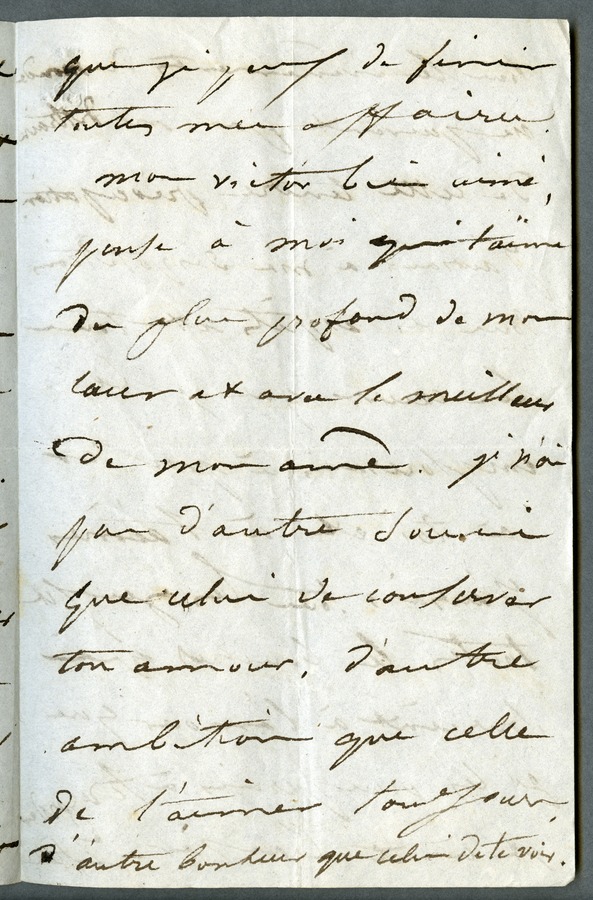 que je puisse de finir
toutes mes affaires.
mon victor bien aimé,
pense à moi qui t'aime
du plus profond de mon
cœur et avec le meilleur
de mon âme. je n'ai
pas d'autre souci
que celui de conserver
ton amour, d'autre
ambition que celle
de t'aimer toujours,
d'autre bonheur que celui de te voir.